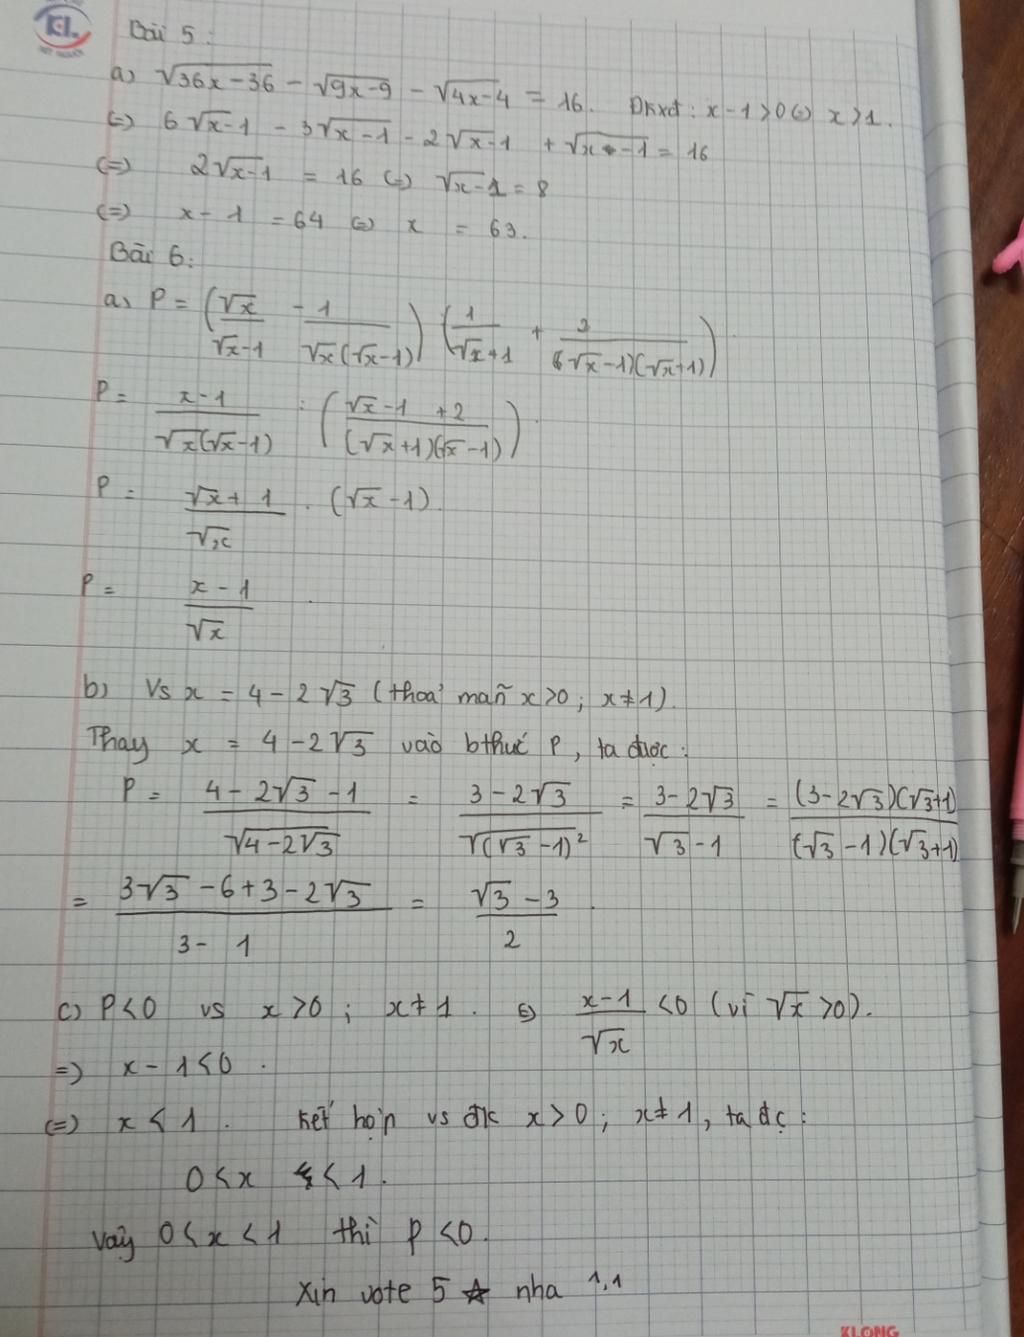 KL
Bài 5:
a) √(36x-36) - √(9x-9) - √(4x-4) = 16. Đkxđ: x-1>0 (=) x>1.
(=) 6√(x-1) - 3√(x-1) - 2√(x-1) + √(x-1) = 16
(=) 2√(x-1) = 16 (=) √(x-1) = 8
(=) x-1 = 64 (=) x = 63.
Bài 6:
a) P = (√x/(√x-1) - 1/(√x(√x-1))) (1/(√x+1) + 2/((√x-1)(√x+1)))
P = (x-1)/(√x(√x-1)) : ((√x-1+2)/((√x+1)(√x-1)))
P = (√x+1)/√x . (√x-1)
P = (x-1)/√x
b) Vs x = 4-2√3 (thoả mãn x>0; x≠1).
Thay x = 4-2√3 vào bthức P, ta được:
P = (4-2√3-1)/√(4-2√3) = (3-2√3)/√((√3-1)²) = (3-2√3)/(√3-1) = ((3-2√3)(√3+1))/((√3-1)(√3+1))
= (3√3-6+3-2√3)/(3-1) = (√3-3)/2.
c) P<0 vs x>0; x≠1. (=) (x-1)/√x <0 (vì √x>0).
=) x-1<0.
(=) x<1. Kết hợp vs đk x>0; x≠1, ta đc:
0<x<1.
Vậy 0<x<1 thì P<0.
Xin vote 5 ☆ nha 1,1
KLONG